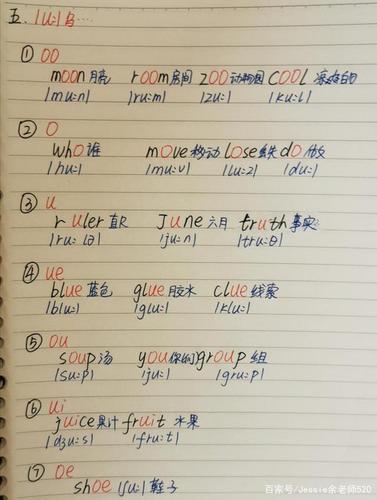 五. |u:|乌..
① oo
moon月亮 room房间 zoo动物园 cool 凉爽的
|mu:n| |ru:m| |zu:| |ku:l|
② o
who谁 move移动 lose丢失 do 做
|hu:| |mu:v| |lu:z| |du:|
③ u
ruler直尺 June六月 truth事实
|ru: lə| |ju:n| |tru:θ|
④ ue
blue 蓝色 glue胶水 clue 线索
|blu:| |glu:| |klu:|
⑤ ou
soup汤 you你(们) group 组
|su:p| |ju:| |gru:p|
⑥ ui
juice果汁 fruit 水果
|dʒu:s| |fru:t|
⑦ oe
shoe |ʃu:| 鞋子
百家号/Jessie余老师520